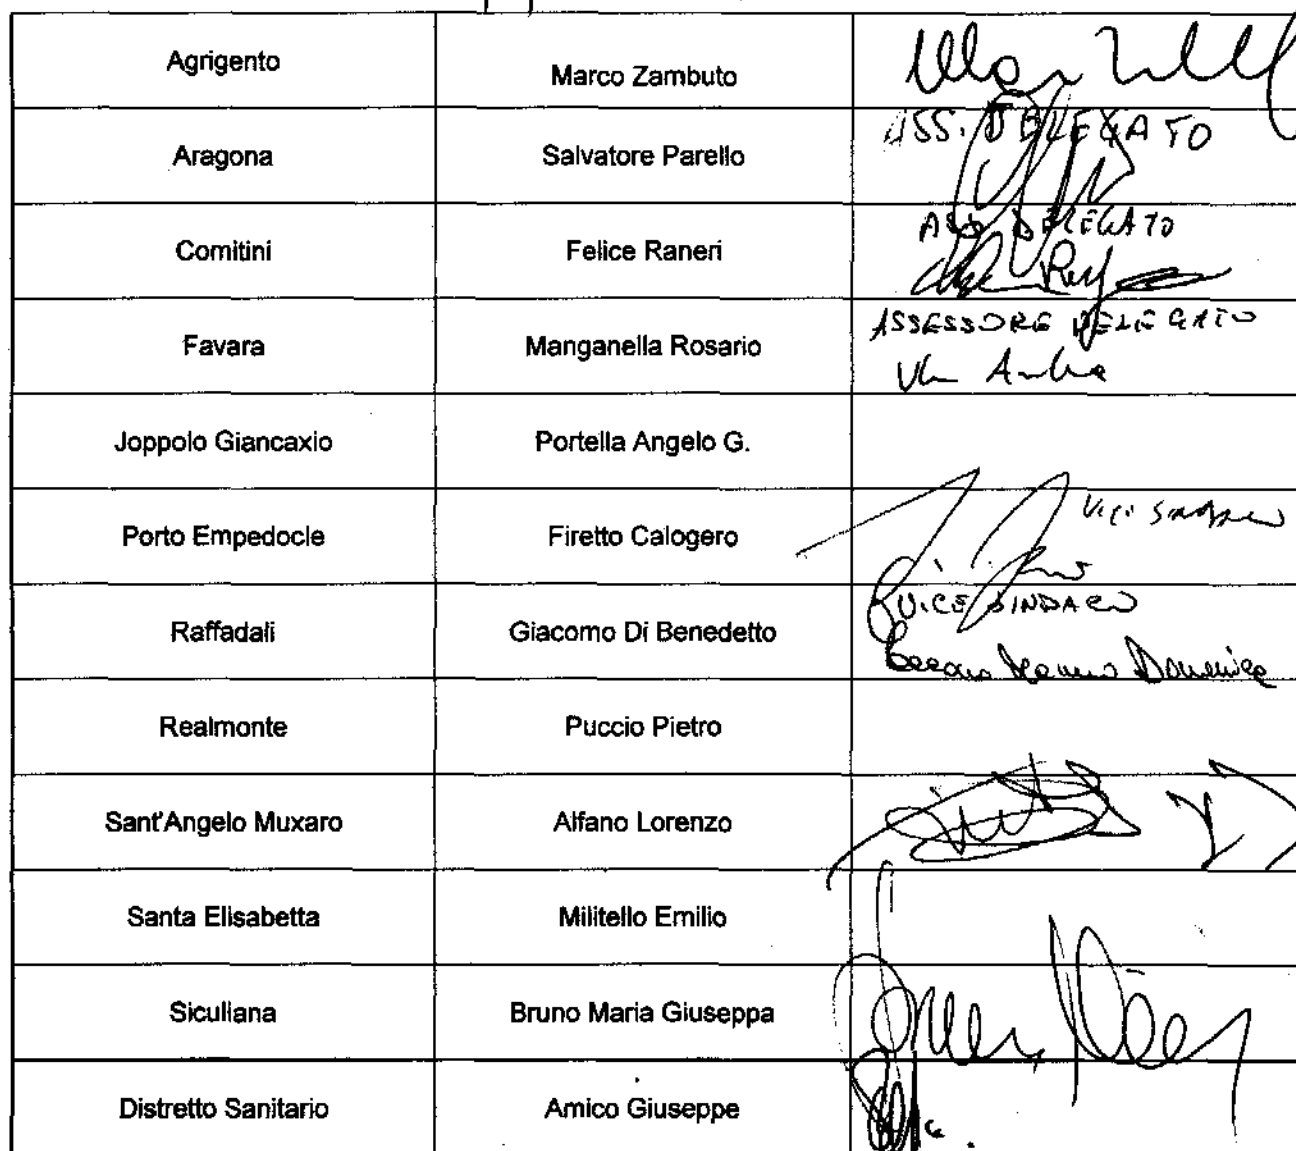 Agrigento Marco Zambuto
ASS. DELEGATO
Aragona Salvatore Parello
ASS DELEGATO
Comitini Felice Raneri
ASSESSORE DELEGATO
Favara Manganella Rosario
Joppolo Giancaxio Portella Angelo G.
Porto Empedocle Firetto Calogero
VICE SINDACO
Raffadali Giacomo Di Benedetto
Realmonte Puccio Pietro
Sant'Angelo Muxaro Alfano Lorenzo
Santa Elisabetta Militello Emilio
Siculiana Bruno Maria Giuseppa
Distretto Sanitario Amico Giuseppe